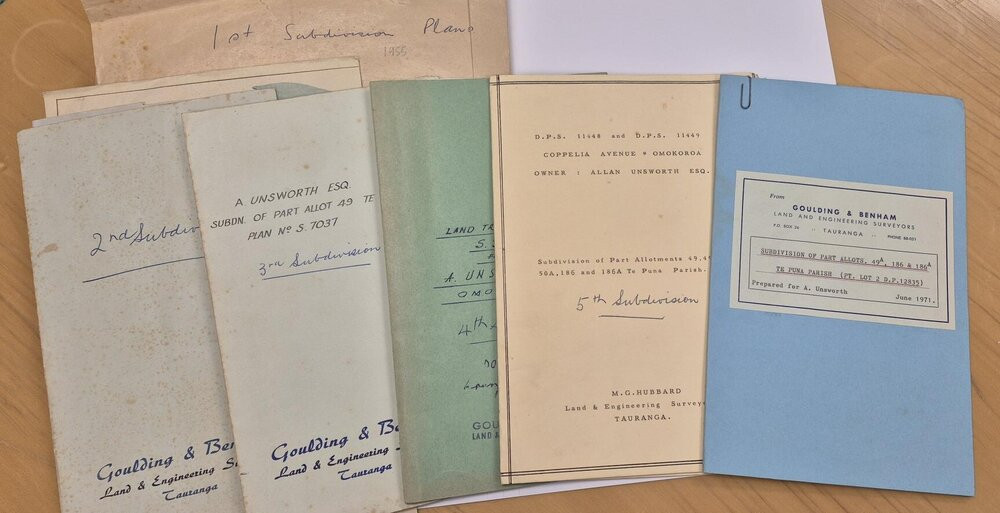 1st Subdivision Plans
1955
2nd Subdiv
Goulding & Be
Land & Engineering S
Tauranga
A. UNSWORTH ESQ.
SUBDN. OF PART ALLOT 49 TE
PLAN No S. 7037
3rd Subdivision
Goulding & Be
Land & Engineering
Tauranga
LAND TR
S.
A. UNS
OMO
4th
70
GOU
LAND &
D.P.S. 11448 and D.P.S. 11449
COPPELIA AVENUE * OMOKOROA
OWNER : ALLAN UNSWORTH ESQ.
Subdivision of Part Allotments 49,49
50A,186 and 186A Te Puna Parish.
5th Subdivision
M.G.HUBBARD
Land & Engineering Survey
TAURANGA.
From
GOULDING & BENHAM
LAND AND ENGINEERING SURVEYORS
P.O. BOX 26 .. TAURANGA .. PHONE
SUBDIVISION OF PART ALLOTS, 49A, 186 & 186A
TE PUNA PARISH (PT. LOT 2 D.P.12835)
Prepared for A. Unsworth
June 1971.